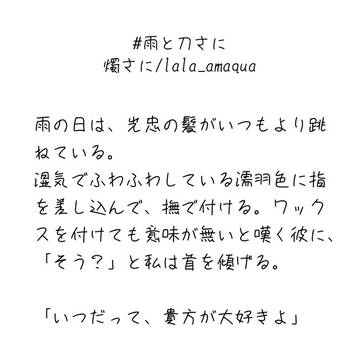 #雨と刀さに
燭さに/lala_amaqua
雨の日は、光忠の髪がいつもより跳
ねている。
湿気でふわふわしている濡羽色に指
を差し込んで、撫で付ける。ワック
スを付けても意味が無いと嘆く彼に、
「そう？」と私は首を傾げる。
「いつだって、貴方が大好きよ」